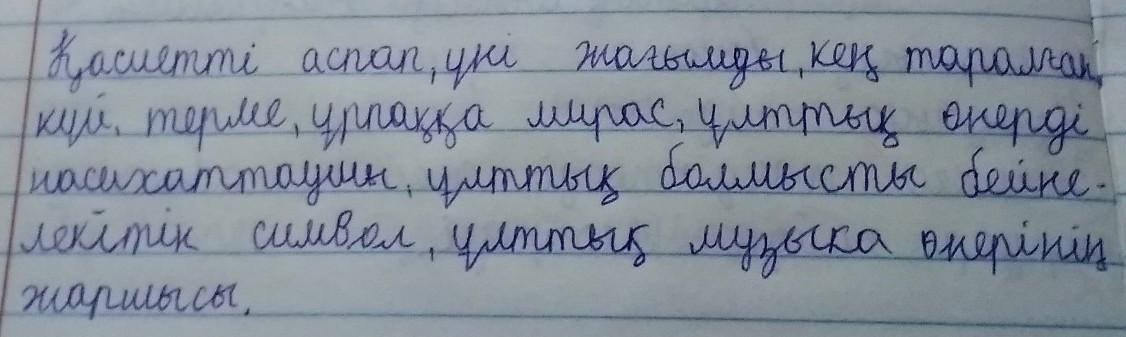 Қасиетті аспап, үні жағымды, кең таралған,
күй, терме, ұрпаққа мирас, ұлттық өнерді
насихаттаушы, ұлттық болмысты бейне-
лейтін символ, ұлттық музыка өнерінің
жаршысы.